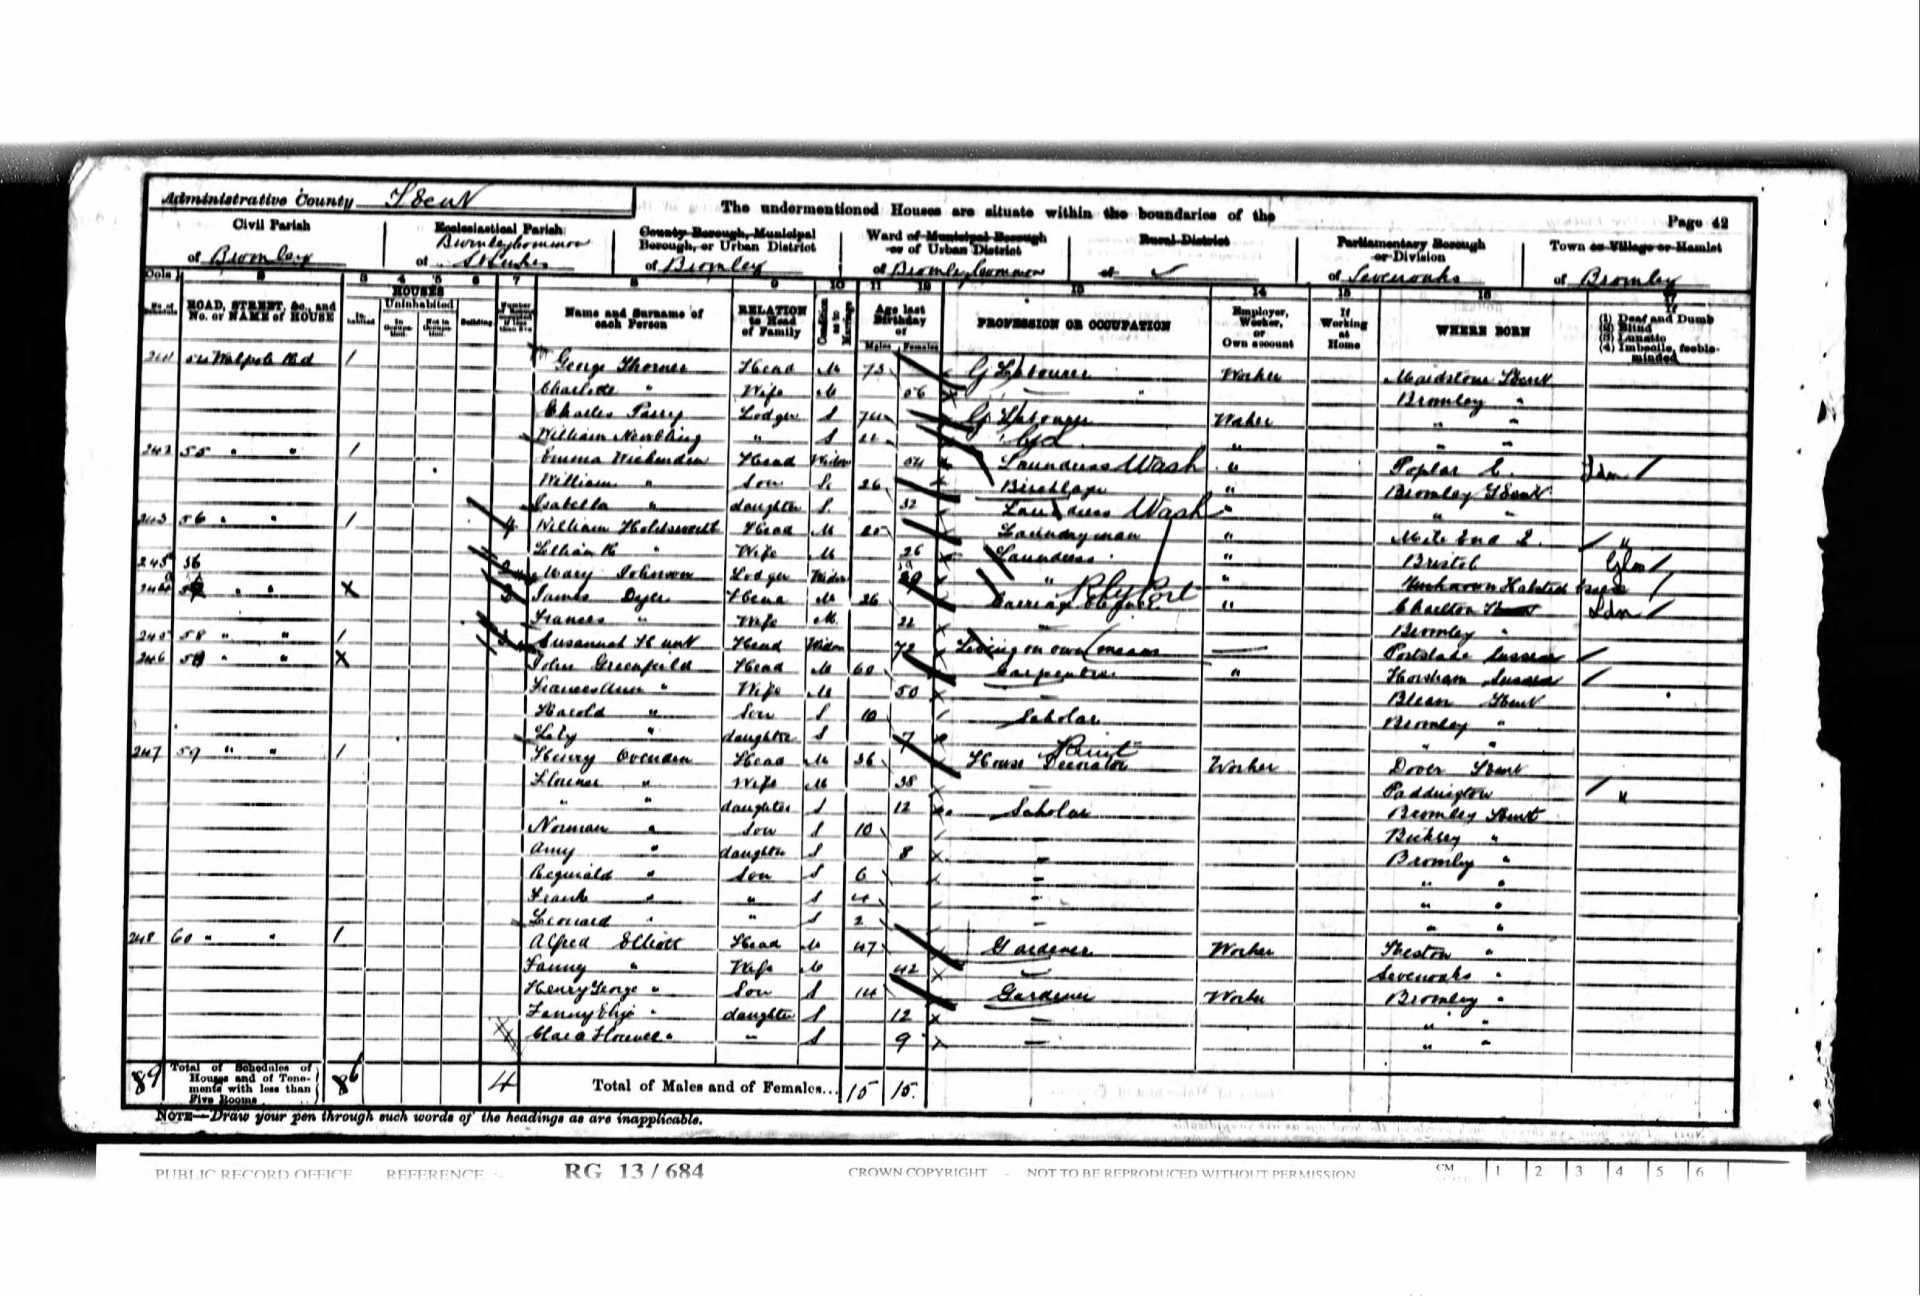 Administrative County Kent
The undermentioned Houses are situate within the boundaries of the
Page 42
Civil Parish of Bromley
Ecclesiastical Parish of Bromley Common St Lukes
County Borough, Municipal Borough, or Urban District of Bromley
Ward of Municipal Borough or of Urban District of Bromley Common
Rural District of
Parliamentary Borough or Division of Sevenoaks
Town or Village or Hamlet of Bromley
Cols 1 2 3 4 5 6 7 8 9 10 11 12 13 14 15 16 17
No. of Schedule
ROAD, STREET, &c., and No. or NAME of HOUSE
HOUSES
Inhabited
Uninhabited
In Occupation.
Not in Occupation.
Building
Name and Surname of each Person
RELATION to Head of Family
Condition as to Marriage
Age last Birthday of
Males Females
PROFESSION OR OCCUPATION
Employer, Worker, or Own account
If Working at Home
WHERE BORN
If (1) Deaf and Dumb (2) Blind (3) Lunatic (4) Imbecile, feeble-minded
241 54 Walpole Rd 1 George Thorner Head M 73 G Labourer Worker Maidstone Kent
Charlotte " Wife M 56 Bromley "
Charles Parry Lodger S 74 G Labourer Worker " "
William " S "
242 55 " " 1 Emma Head Widow 54 Laundress Wash " Poplar E. Ldn
William " Son S 26 " Bromley Kent
Isabella " daughter S 32 Laundress Wash " " "
243 56 " " 1 4 William Holdsworth Head M 25 Laundryman " Mile End E. "
Lilian K " Wife M 26 Laundress " Bristol Glos
56 Mary Johnson Lodger Widow " " Halstead
" " X James Dyer Head M 26 Carriage Rly Port " Charlton Ldn
Frances " Wife M 22 Bromley "
245 58 " " 1 Susannah Hunt Head Widow 72 Living on own means Portslade Sussex
246 " " X John Greenfield Head M 60 Carpenter " Horsham Sussex
Frances Ann " Wife M 50 Blean Kent
Harold " Son S 10 Scholar Bromley "
Lily " daughter S 7 " "
247 59 " " 1 Henry Ovenden Head M 36 House Decorator Paint Worker Dover Kent
Florence " Wife M 38 Paddington "
" " daughter S 12 Scholar Bromley Kent
Norman " Son S 10 Bickley "
Amy " daughter S 8 Bromley "
Reginald " Son S 6 " "
Frank " " S 4 " "
Leonard " " S 2 " "
248 60 " " 1 Alfred Elliott Head M 47 Gardener Worker Keston "
Fanny " Wife M 42 Sevenoaks "
Henry George " Son S 14 Gardener Worker Bromley "
Fanny Eliz " daughter S 12 " "
Clara Florence " " S 9 " "
89
Total of Schedules of Houses and of Tenements with less than Five Rooms
86 4
Total of Males and of Females... 15 15
NOTE—Draw your pen through such words of the headings as are inapplicable.
PUBLIC RECORD OFFICE REFERENCE RG 13/684 CROWN COPYRIGHT - NOT TO BE REPRODUCED WITHOUT PERMISSION CM 1 2 3 4 5 6